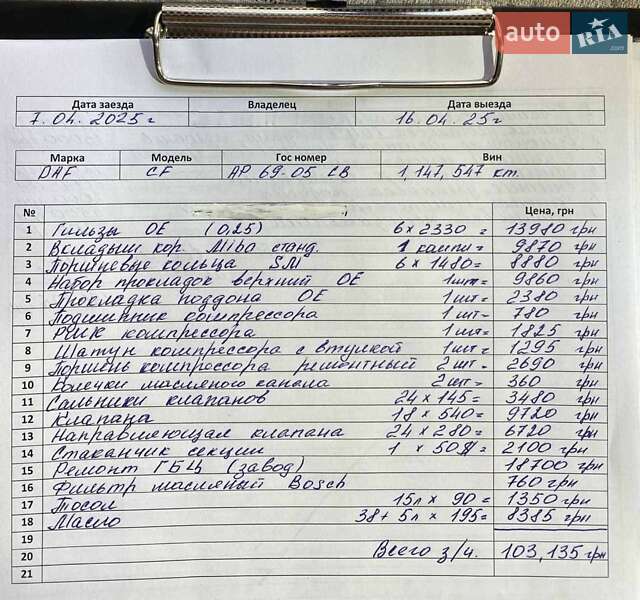 auto RIA .com
Дата заезда Владелец Дата выезда
7.04.2025г 16.04.25г
Марка Модель Гос номер Вин
DAF CF АР 69-05 СВ 1,147,547 km.
№ Цена, грн
1 Гильзы ОЕ (0,25) 6 x 2330 = 13980 грн
2 Вкладыш кор. Miba станд. 1 компл = 9870 грн
3 Поршневые кольца SM 6 x 1480 = 8880 грн
4 Набор прокладок верхний ОЕ 1шт = 9860 грн
5 Прокладка поддона ОЕ 1шт = 2380 грн
6 Подшипник компрессора 1шт - 780 грн
7 РМК компрессора 1шт = 1825 грн
8 Шатун компрессора с втулкой 1шт = 1295 грн
9 Поршень компрессора ремонтный 2шт - 2690 грн
10 Колечки масляного канала 2шт - 360 грн
11 Сальники клапанов 24 x 145 = 3480 грн
12 Клапана 18 x 540 = 9720 грн
13 Направляющая клапана 24 x 280 = 6720 грн
14 Стаканчик секции 1 x 50$ = 2100 грн
15 Ремонт ГБЦ (завод) 18700 грн
16 Фильтр масляный Bosch 760 грн
17 Тосол 15л x 90 = 1350 грн
18 Масло 38+5л x 195 = 8385 грн
19
20 Всего з/ч. 103,135 грн
21